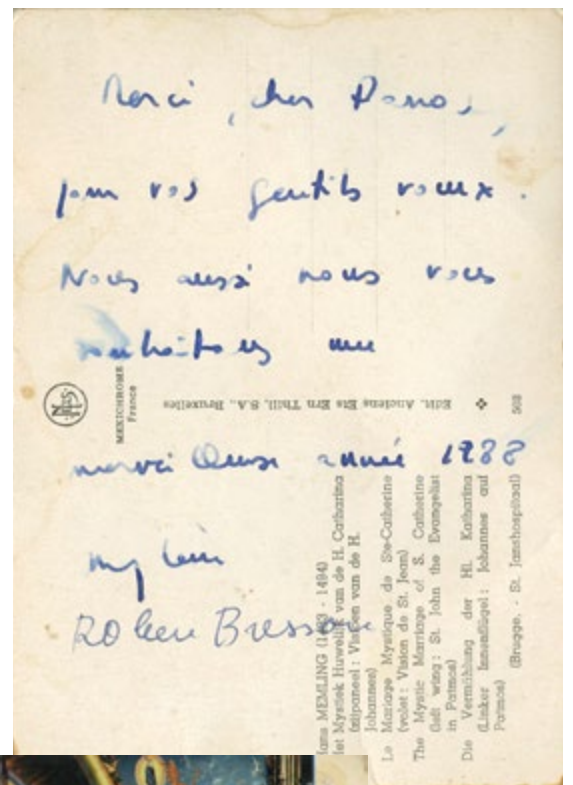 Merci, cher Panos,
pour vos gentils voeux.
Nous aussi nous vous
souhaitons une
merveilleuse année 1988
Robert Bresson
NELS
MEXICHROME
France
Edit. Anciens Ets Ern Thill, S.A., Bruxelles
508
Hans MEMLING (1433 - 1494)
Het Mystiek Huwelijk van de H. Catharina
(zijpaneel : Visioen van de H.
Johannes)
Le Mariage Mystique de Ste-Catherine
(volet : Vision de St. Jean)
The Mystic Marriage of S. Catherine
(left wing : St. John the Evangelist
in Patmos)
Die Vermählung der Hl. Katharina
(Linker Innenflügel : Johannes auf
Patmos)
(Brugge. - St. Janshospitaal)